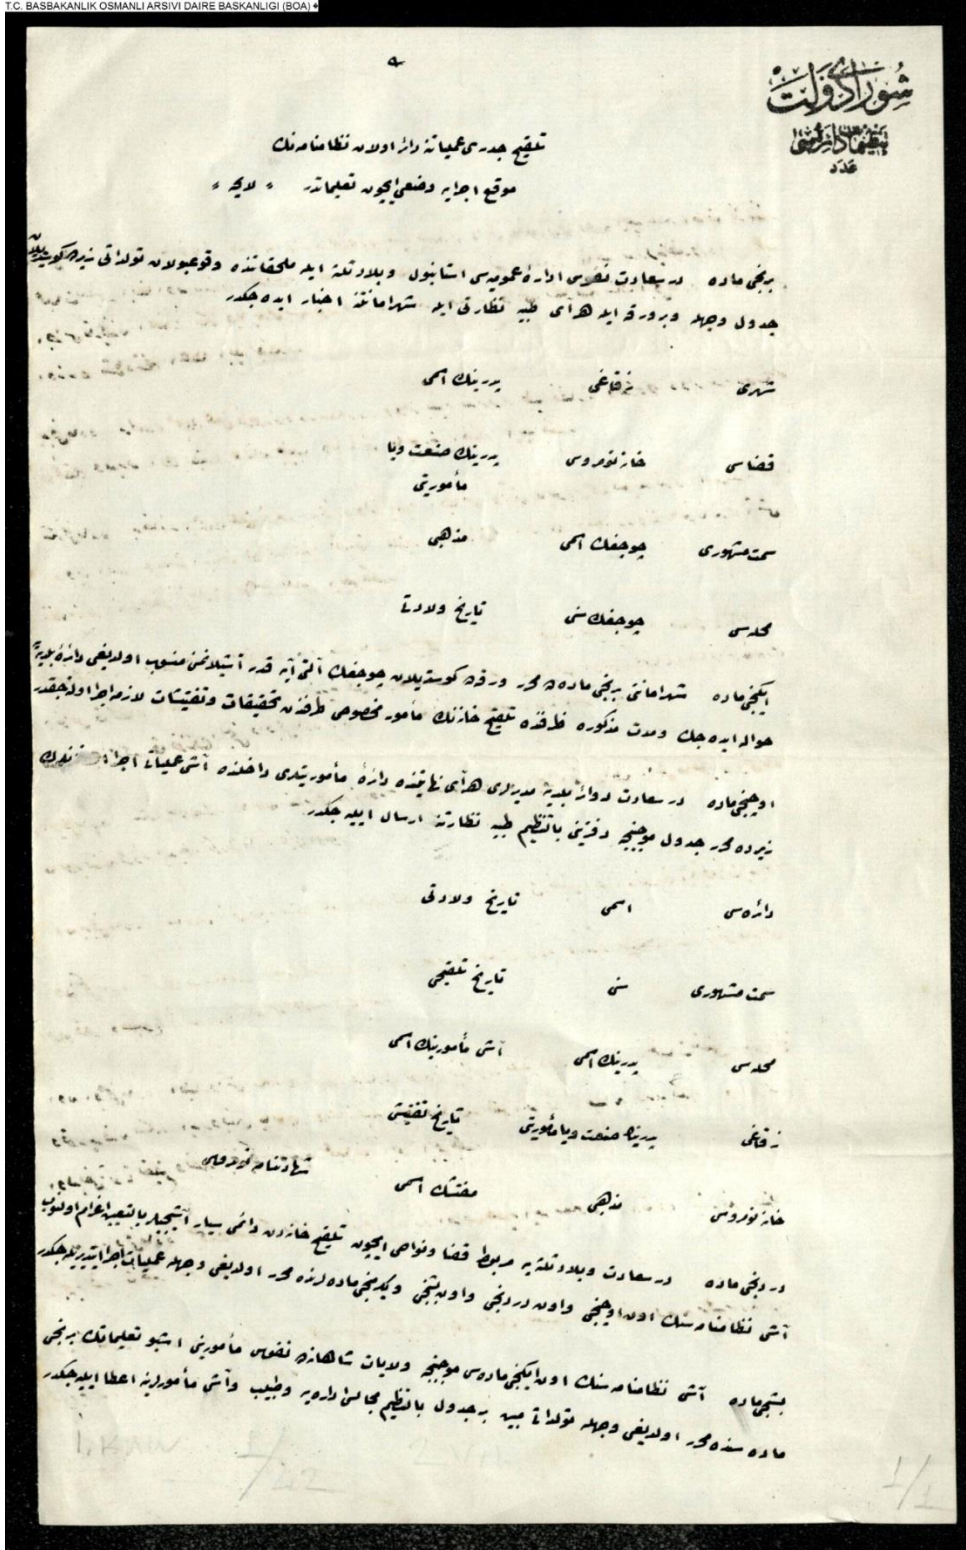 T.C. BASBAKANLIK OSMANLI ARSIVI DAIRE BASKANLIGI (BOA)
شورای دولت
تنظیمات دائره‌سی
عدد
تلقیح جدری عملیاتنه دائر اولان نظامنامه‌نك
موقع اجرایه وضعی ایچون تعلیماتدر « لایحه »
برنجی ماده در سعادت نفوس اداره عمومیه‌سی استانبول و بلاد ثلثه ایله ملحقاتنده وقوعبولان تولداتی زیرده كوستریلان
جدول وجهله و برورقه ایله هر آی طبیه نظارتی ایله شهرامانتنه اخبار ایده جكدر
شهری زقاغی پدرینك اسمی
قضاسی خانه نومروسی پدرینك صنعت ویا
مأموریتی
سمت مشهوری چوجغك اسمی مذهبی
محله‌سی چوجغك سنی تاریخ ولادتی
ایكنجی ماده شهرامانتی برنجی ماده‌ده محرر ورقه‌ده كوستریلان چوجغك التی آیه قدر آشیلانمسنی منسوب اولدیغی دائره بلدیه‌یه
حواله ایده جك و مدت مذكوره ظرفنده تلقیح خانه‌نك مأمور مخصوصی طرفندن تحقیقات و تفتیشات لازمه اجرا اولنه جقدر
اوچنجی ماده در سعادت دوائر بلدیه مدیرلری هر آی نهایتنده دائره مأموریتلری داخلنده آشی عملیاتی اجرا
زیرده محرر جدول موجبنجه دفترینی بالتنظیم طبیه نظارتنه ارسال ایلیه جكدر
دائره‌سی اسمی تاریخ ولادتی
سمت مشهوری سنی تاریخ تلقیحی
محله‌سی پدرینك اسمی آشی مأمورینك اسمی
زقاغی پدرینك صنعت ویا مأموریتی تاریخ تفتیش
خانه نومروسی مذهبی مفتشك اسمی شهادتنامه نومروسی
دردنجی ماده در سعادت و بلاد ثلثه‌یه مربوط قضا و نواحی ایچون تلقیح خانه‌دن دائمی سیار آشیجیلر بالتعیین اعزام اولنوب
آشی نظامنامه‌سنك اون اوچنجی و اون دردنجی و اون بشنجی و یكرمنجی ماده‌لرنده محرر اولدیغی وجهله عملیات اجرا ایتدیریله جكدر
بشنجی ماده آشی نظامنامه‌سنك اون ایكنجی ماده‌سی موجبنجه ولایات شاهانه نفوس مأمورینی اشبو تعلیماتك برنجی
ماده‌سنده محرر اولدیغی وجهله تولداتی مبین برجدول بالتنظیم مجالس اداریه و طبیب و آشی مأمورلرینه اعطا ایلیه جكدر